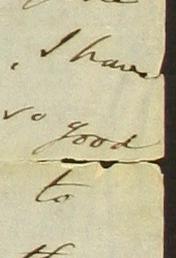 , I have
so good
to